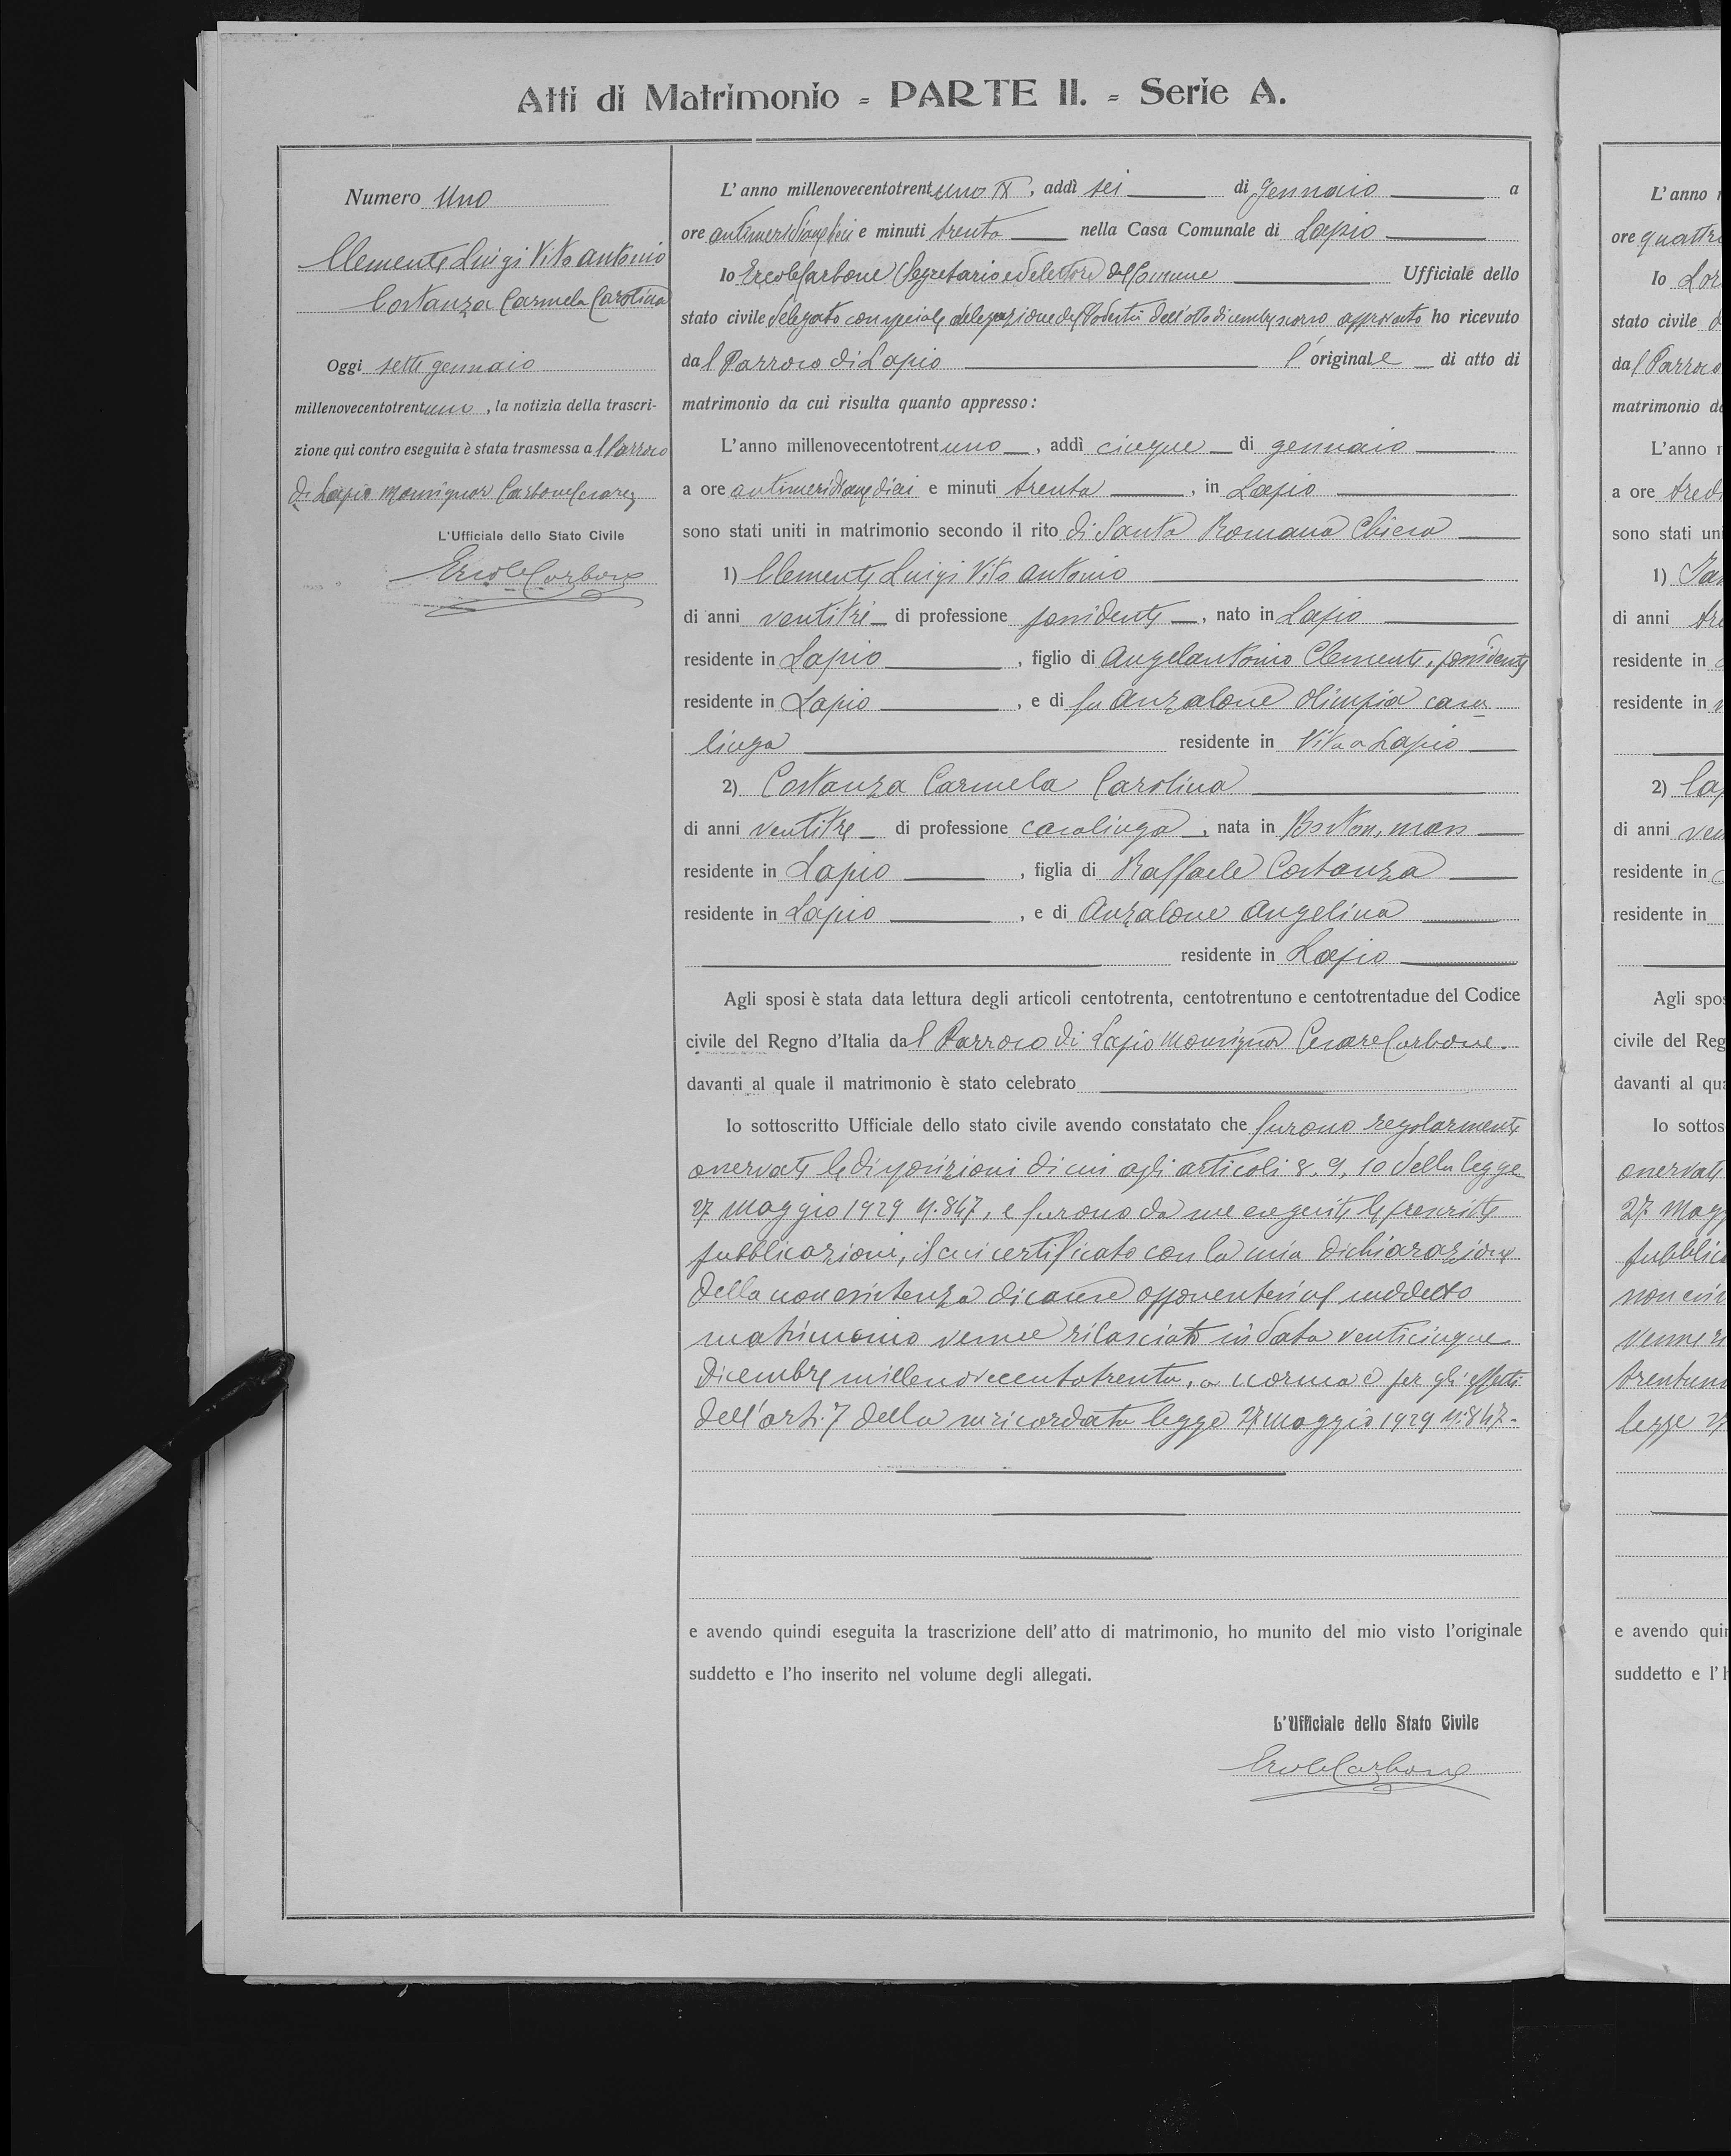 Atti di Matrimonio = PARTE II. = Serie A.
Numero Uno
Clemente Luigi Vito Antonio
Costanza Carmela Carolina
Oggi sette gennaio
millenovecentotrentuno, la notizia della trascri-
zione qui contro eseguita è stata trasmessa al Parroco
di Lapio Monsignor Carbone Cesare
L'Ufficiale dello Stato Civile
Ercole Carbone
L'anno millenovecentotrentuno IX, addì sei di Gennaio a
ore antimeridiane dieci e minuti trenta nella Casa Comunale di Lapio
Io Ercole Carbone Segretario del Comune Ufficiale dello
stato civile delegato con speciale delegazione del Podestà dell'otto dicembre scorso approvato ho ricevuto
dal Parroco di Lapio l'originale di atto di
matrimonio da cui risulta quanto appresso:
L'anno millenovecentotrentuno, addì cinque di gennaio
a ore antimeridiane dieci e minuti trenta, in Lapio
sono stati uniti in matrimonio secondo il rito di Santa Romana Chiesa
1) Clemente Luigi Vito Antonio
di anni ventitrè di professione possidente, nato in Lapio
residente in Lapio, figlio di Angelantonio Clemente, possidente
residente in Lapio, e di fu Anzalone Olimpia casa
linga residente in Vita a Lapio
2) Costanza Carmela Carolina
di anni ventitre di professione casalinga, nata in Boston, mass
residente in Lapio, figlia di Raffaele Costanza
residente in Lapio, e di Anzalone Angelina
residente in Lapio
Agli sposi è stata data lettura degli articoli centotrenta, centotrentuno e centotrentadue del Codice
civile del Regno d'Italia dal Parroco di Lapio Monsignor Cesare Carbone.
davanti al quale il matrimonio è stato celebrato
Io sottoscritto Ufficiale dello stato civile avendo constatato che furono regolarmente
osservate le disposizioni di cui agli articoli 8, 9, 10 della legge
27 Maggio 1929 N. 847, e furono da me eseguite le prescritte
pubblicazioni, il cui certificato con la mia dichiarazione
della non esistenza di cause opponentesi al suddetto
matrimonio venne rilasciato in data venticinque
Dicembre millenovecentotrenta, a norma e per gli effetti
dell'art. 7 della suricordata legge 27 Maggio 1929 N. 847.
e avendo quindi eseguita la trascrizione dell'atto di matrimonio, ho munito del mio visto l'originale
suddetto e l'ho inserito nel volume degli allegati.
L'Ufficiale dello Stato Civile
Ercole Carbone
L'anno
ore quattro
Io
stato civile
dal Parroco
matrimonio
L'anno
a ore
sono stati
1)
di anni
residente in
residente in
2)
di anni
residente in
residente in
Agli
civile del
davanti al
Io
osservate
27 
non
venne
legge
e avendo
suddetto e